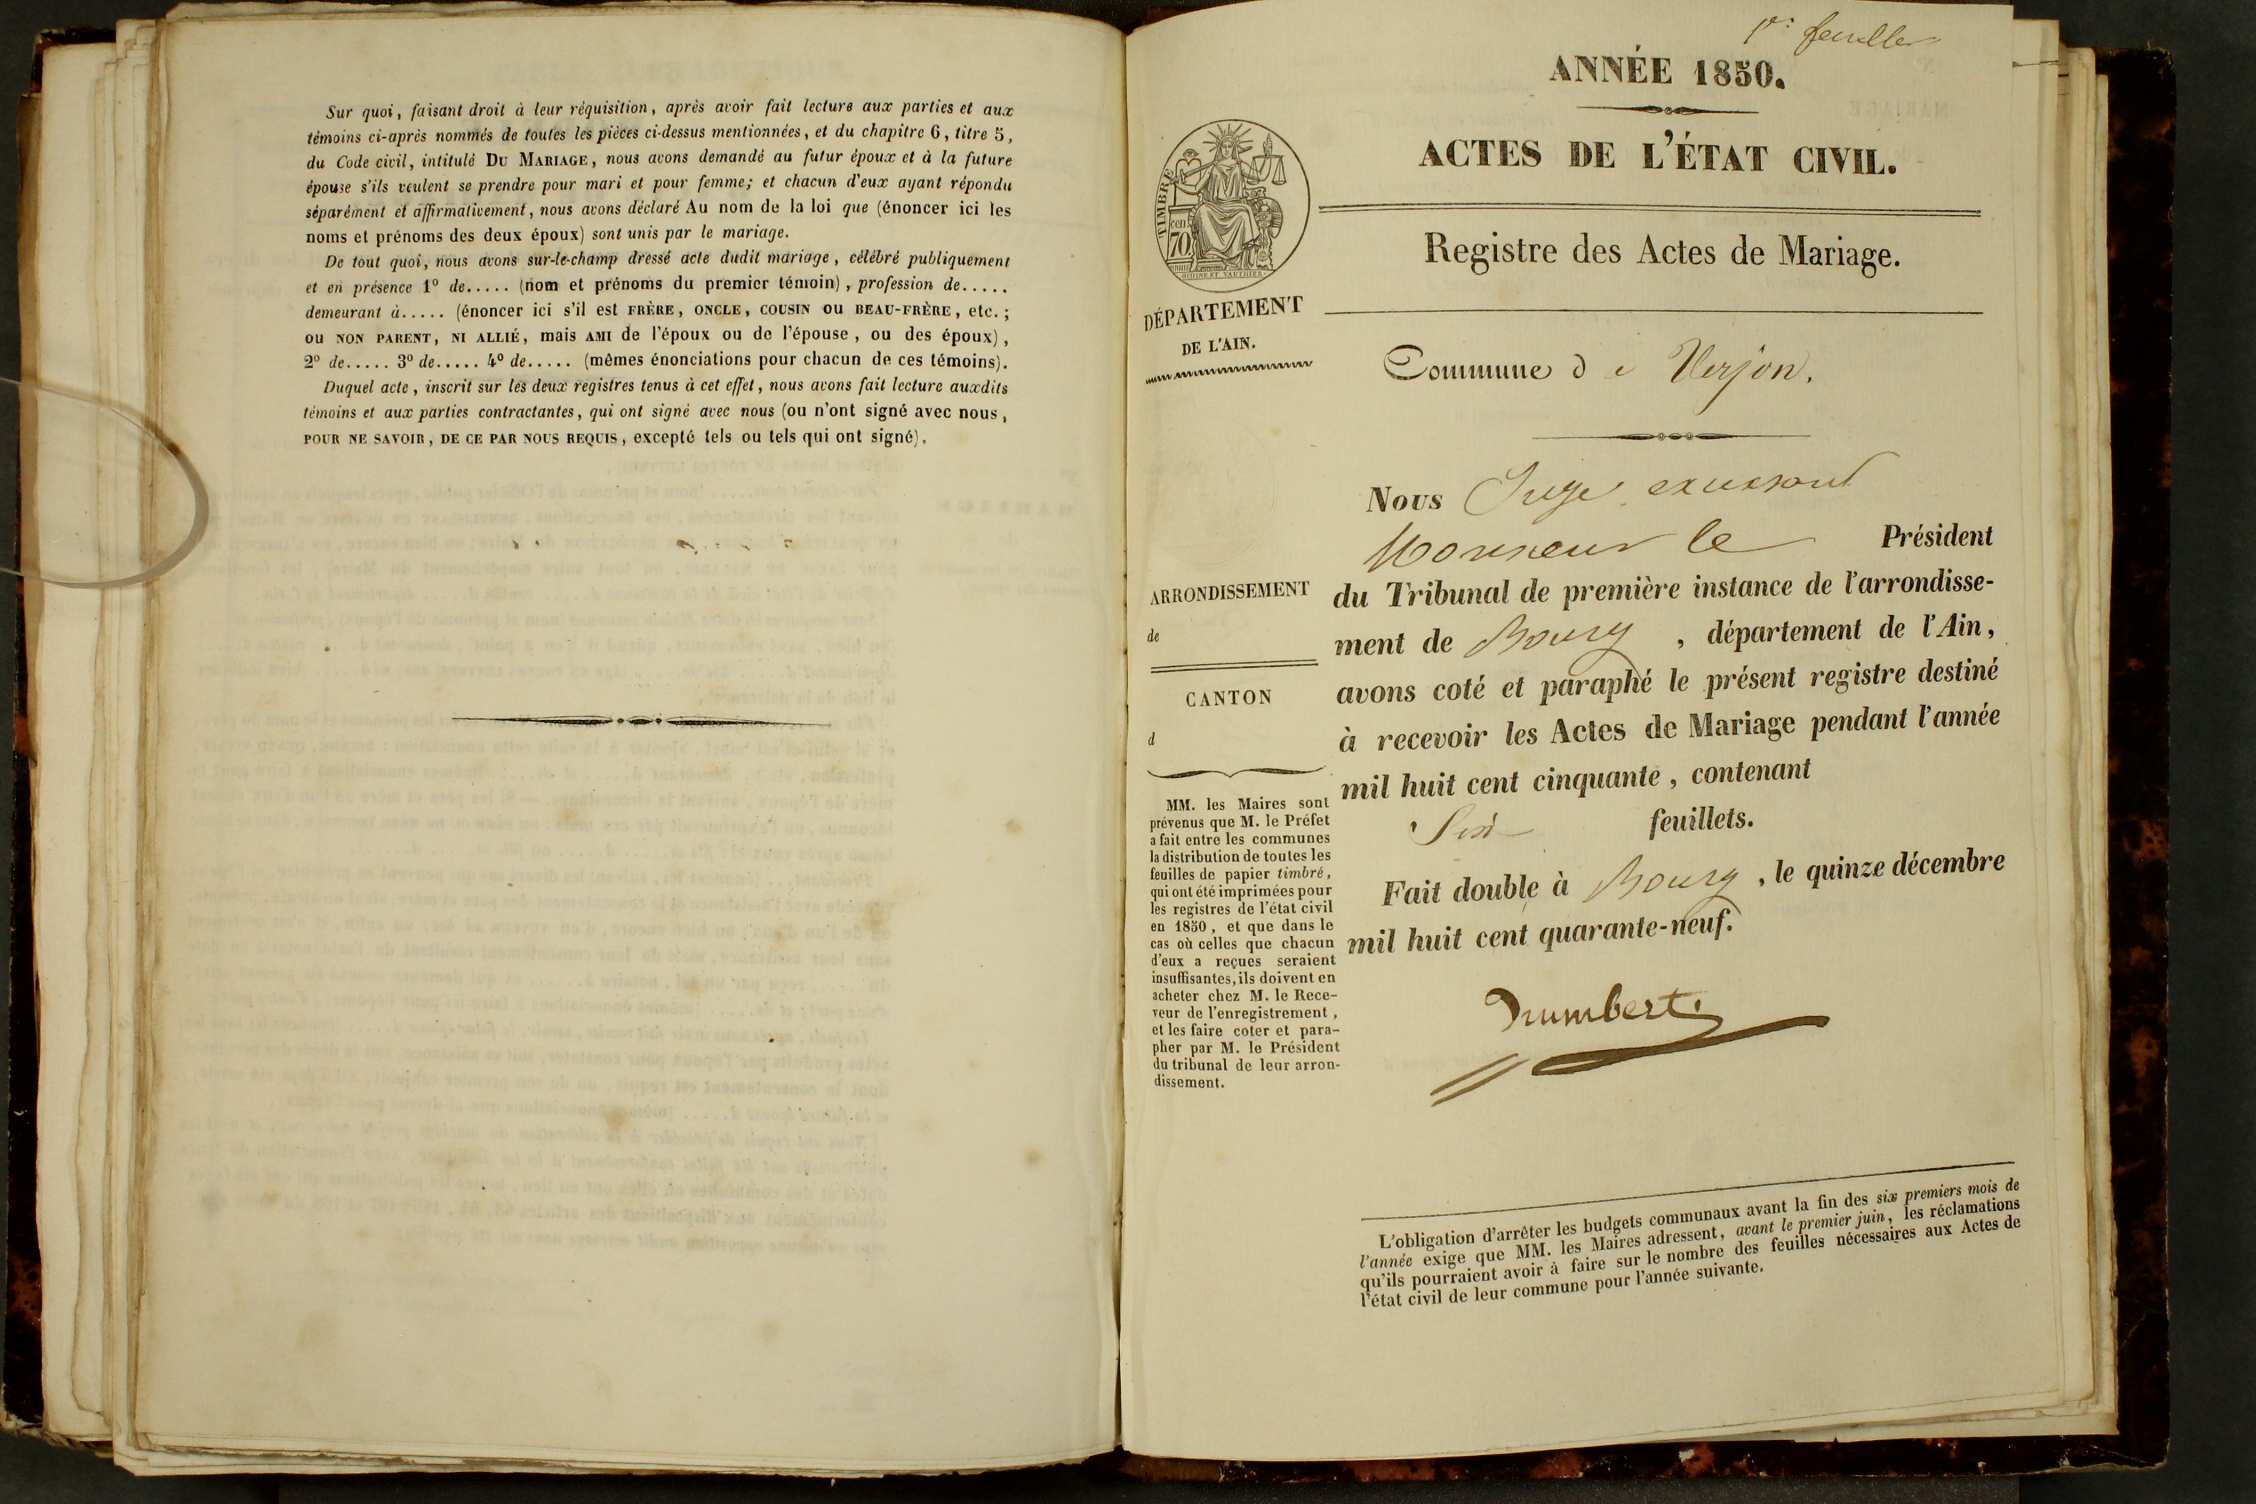 Sur quoi, faisant droit à leur réquisition, après avoir fait lecture aux parties et aux
témoins ci-après nommés de toutes les pièces ci-dessus mentionnées, et du chapitre 6, titre 5,
du Code civil, intitulé DU MARIAGE, nous avons demandé au futur époux et à la future
épouse s'ils veulent se prendre pour mari et pour femme; et chacun d'eux ayant répondu
séparément et affirmativement, nous avons déclaré Au nom de la loi que (énoncer ici les
noms et prénoms des deux époux) sont unis par le mariage.
De tout quoi, nous avons sur-le-champ dressé acte dudit mariage, célébré publiquement
et en présence 1º de..... (nom et prénoms du premier témoin), profession de.....
demeurant à..... (énoncer ici s'il est FRÈRE, ONCLE, COUSIN OU BEAU-FRÈRE, etc.;
ou NON PARENT, NI ALLIÉ, mais AMI de l'époux ou de l'épouse, ou des époux),
2º de..... 3º de..... 4º de..... (mêmes énonciations pour chacun de ces témoins).
Duquel acte, inscrit sur les deux registres tenus à cet effet, nous avons fait lecture auxdits
témoins et aux parties contractantes, qui ont signé avec nous (ou n'ont signé avec nous,
POUR NE SAVOIR, DE CE PAR NOUS REQUIS, excepté tels ou tels qui ont signé).
ANNÉE 1850.
ACTES DE L'ÉTAT CIVIL.
Registre des Actes de Mariage.
TIMBRE
cen
70
DÉPARTEMENT
DE L'AIN.
Commune de Verjon.
Nous Juge
Monsieur le Président
du Tribunal de première instance de l'arrondisse-
ment de Bourg, département de l'Ain,
avons coté et paraphé le présent registre destiné
à recevoir les Actes de Mariage pendant l'année
mil huit cent cinquante, contenant
Six feuillets.
Fait double à Bourg, le quinze décembre
mil huit cent quarante-neuf.
ARRONDISSEMENT
de
CANTON
d
MM. les Maires sont
prévenus que M. le Préfet
a fait entre les communes
la distribution de toutes les
feuilles de papier timbré,
qui ont été imprimées pour
les registres de l'état civil
en 1850, et que dans le
cas où celles que chacun
d'eux a reçues seraient
insuffisantes, ils doivent en
acheter chez M. le Rece-
veur de l'enregistrement,
et les faire coter et para-
pher par M. le Président
du tribunal de leur arron-
dissement.
L'obligation d'arrêter les budgets communaux avant la fin des six premiers mois de
l'année exige que MM. les Maires adressent, avant le premier juin, les réclamations
qu'ils pourraient avoir à faire sur le nombre des feuilles nécessaires aux Actes de
l'état civil de leur commune pour l'année suivante.